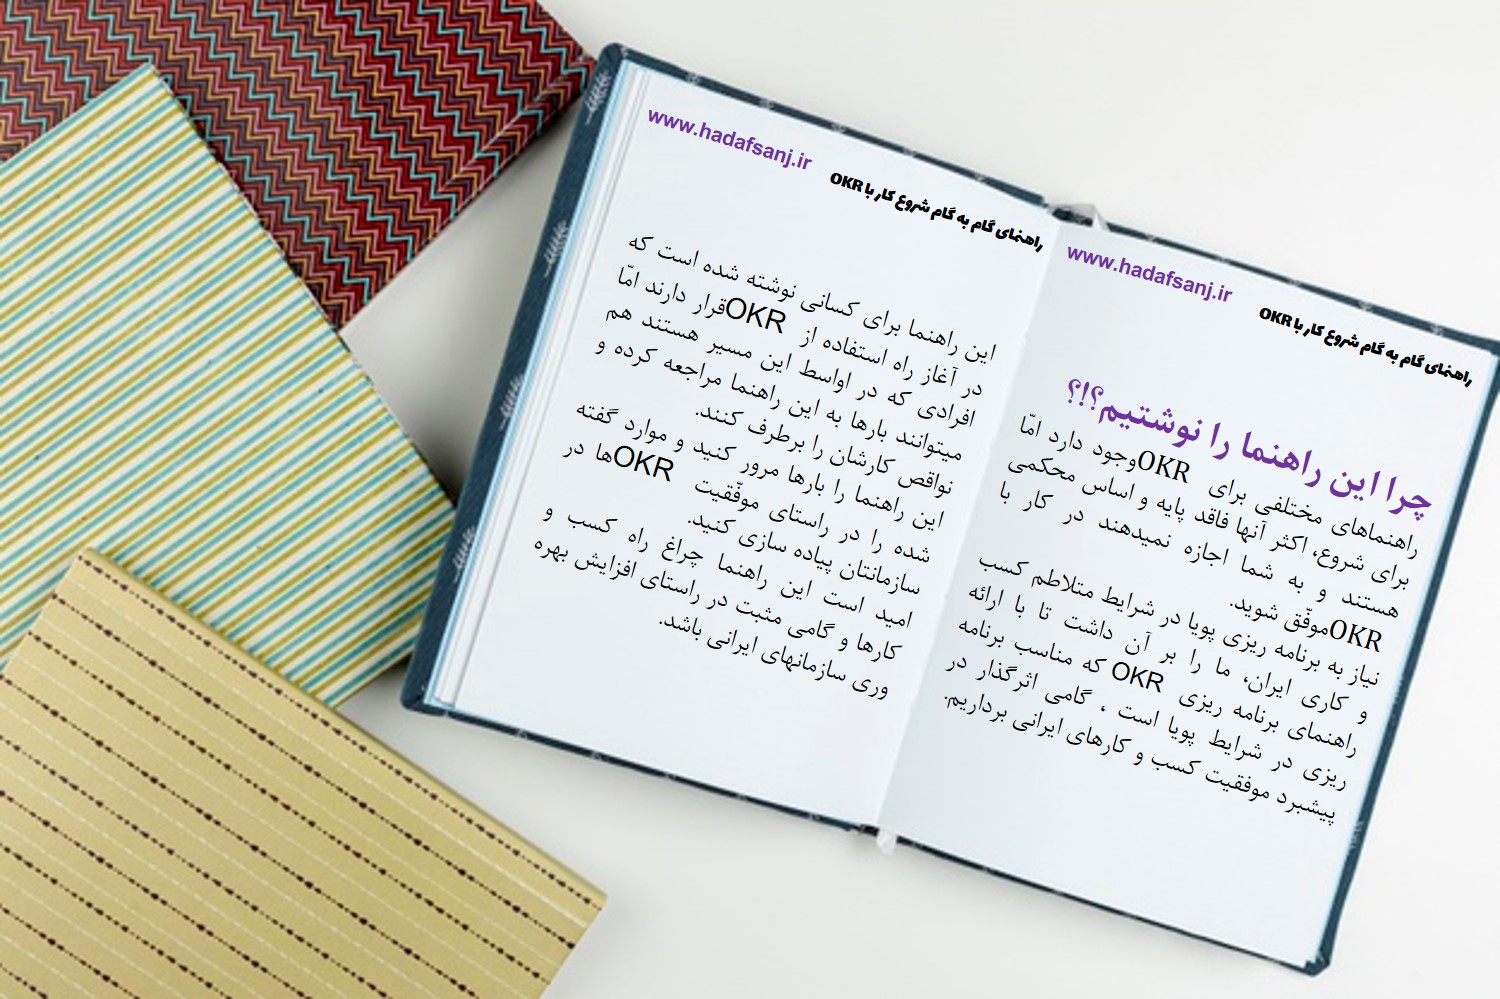 www.hadafsanj.ir
راهنمای گام به گام شروع کار با OKR
چرا این راهنما را نوشتیم؟!؟
راهنماهای مختلفی برای OKRوجود دارد امّا
برای شروع، اکثر آنها فاقد پایه و اساس محکمی
هستند و به شما اجازه نمیدهند در کار با
OKRموفّق شوید.
نیاز به برنامه ریزی پویا در شرایط متلاطم کسب
و کاری ایران، ما را بر آن داشت تا با ارائه
راهنمای برنامه ریزی OKR که مناسب برنامه
ریزی در شرایط پویا است ، گامی اثرگذار در
پیشبرد موفقیت کسب و کارهای ایرانی برداریم.
www.hadafsanj.ir
راهنمای گام به گام شروع کار با OKR
این راهنما برای کسانی نوشته شده است که
در آغاز راه استفاده از OKRقرار دارند امّا
افرادی که در اواسط این مسیر هستند هم
میتوانند بارها به این راهنما مراجعه کرده و
نواقص کارشان را برطرف کنند.
این راهنما را بارها مرور کنید و موارد گفته
شده را در راستای موفّقیت OKRها در
سازمانتان پیاده سازی کنید.
امید است این راهنما چراغ راه کسب و
کارها و گامی مثبت در راستای افزایش بهره
وری سازمانهای ایرانی باشد.